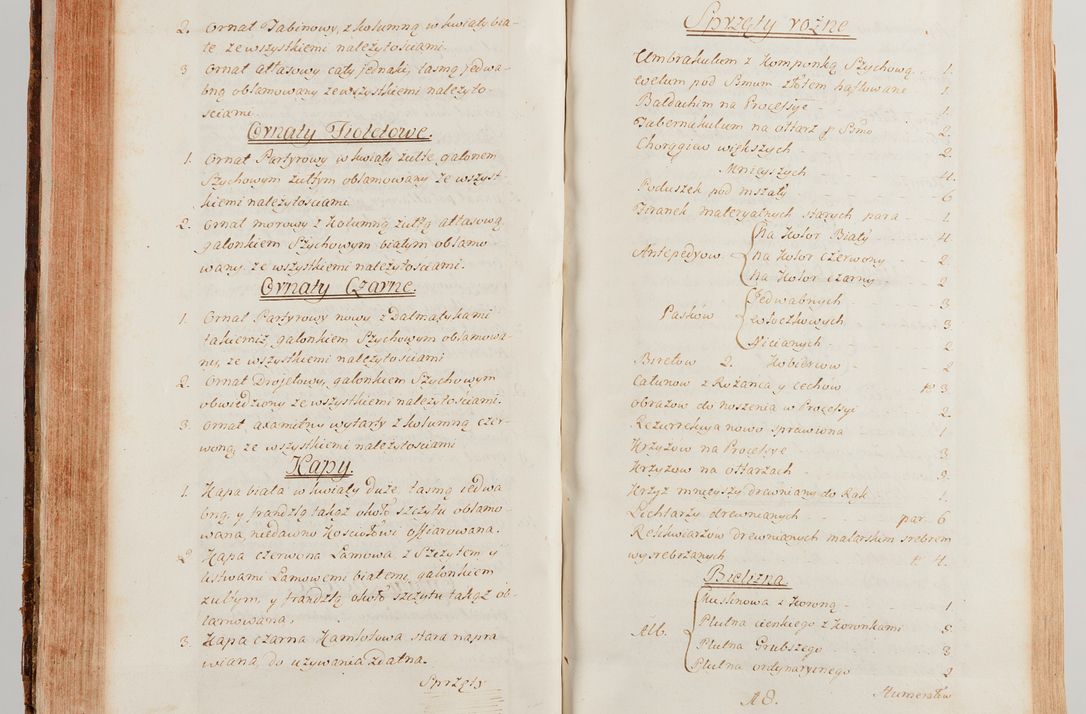 2. Ornat Tabinowy, z kolumną w kwiaty bia-
te ze wszystkiemi należytościami.
3 Ornat atłasowy cały jednaki, taśmą jedwa-
bną oblamowany ze wszystkiemi należyto-
ściami.
Ornaty Fioletowe.
1. Ornat Partyrowy w kwiaty żułte, galonem
Szychowym żułtym oblamowany ze wszyst-
kiemi należytościami
2. Ornat morowy z kolumną żułtą atłasową
galonkiem Szychowym białym oblamo
wany, ze wszystkiemi należytościami.
Ornaty Czarne.
1. Ornat Partyrowy nowy z Dalmatykami
takiemiż galonkiem Szychowym oblamowa
ny, ze wszystkiemi należytościami
2. Ornat Drojetowy, galonkiem Szychowym
obwiedziony ze wszystkiemi należytościami.
3. Ornat, axamitny wytarty z kolumną czer-
woną, ze wszystkiemi należytościami
Kapy.
1. Kapa biała w kwiaty duże, taśmą iedwa
bną, y frandzlą takąż około szczytu oblamo-
wana, niedawno Kosciołowi offiarowana.
2 Kapa czerwona Lamowa, z Szczytem y
listwami Lamowemi białemi, galonkiem
żułtym, y frandzlą około szczytu takąż ob-
lamowana.
3. Kapa czarna Kamlotowa stara napra
wiana, do używania zdatna.
Sprzęty
Sprzęty rożne
Umbrakulum z Komponką Szychową - 1.
welum pod Smum złotem haftowane 1.
Baldachim na Processye - 1.
Tabernakulum na ołtarz p. Smo 2.
Chorągiew większych - 2.
Mnieyszych - 4.
Poduszek pod mszały - 6
Firanek materyalnych starych para - 1.
na Kolor Biały - 4
Antepedyow. na Kolor czerwony - 2.
na Kolor czarny - 2
Jedwabnych - 3
Pasków włoczkowych - 3
Nicianych - 2
Biretow 2. Kobiercow - 2
Całunow z Rożańca y cechow p 3.
Obrazow do noszenia w Processyi 2.
Rezurrekcya nowo sprawiona 1.
Krzyżow na Processye - 3
Krzyżow na ołtarzach - 9.
Krzyż mnieyszy drewniany do Rąk - 1.
Lichtarzy drewnianych - par - 6
Relikwiarzow drewnianych malarskim srebrem
wysrebrzanych p 4.
Bielizna
Muslinowa z Koroną - 1
Alb. Płutna cienkiego z Koronkami 5.
Płutna Grubszego 8
Płutna ordynaryinego 2
Humerałow